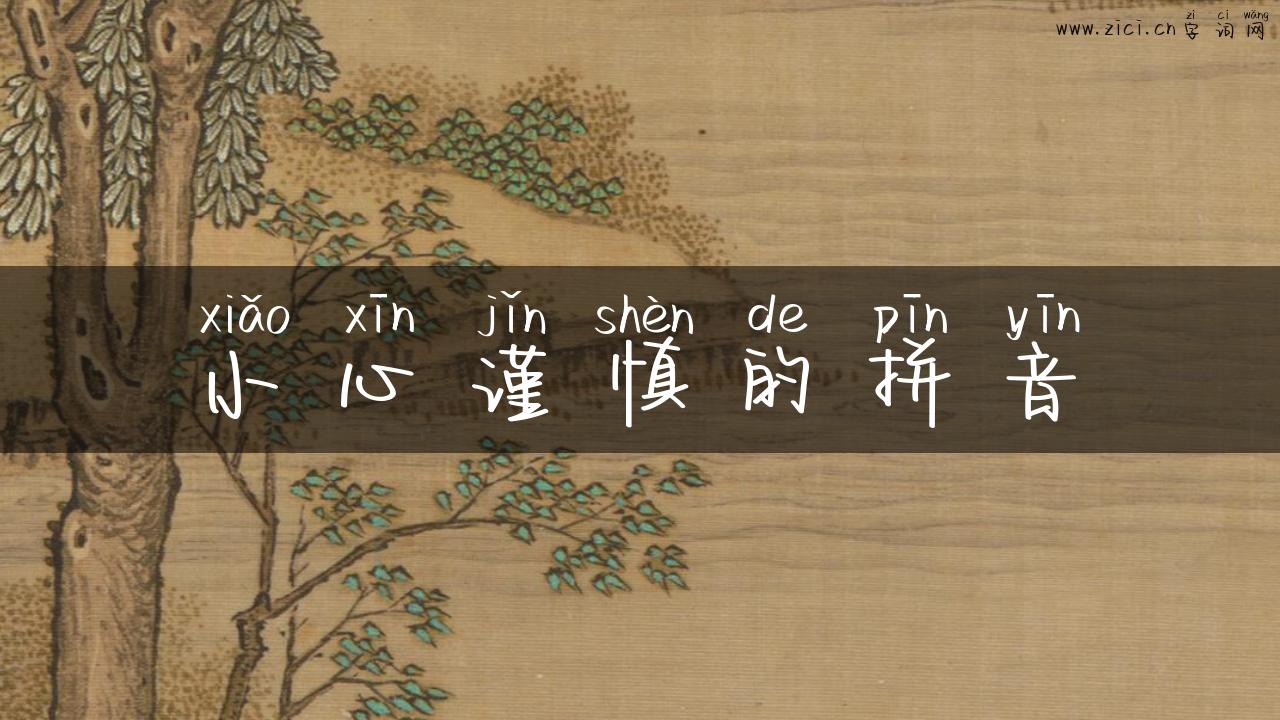 zì cí wǎng
www.zici.cn 字词网
xiǎo xīn jǐn shèn de pīn yīn
小心谨慎的拼音